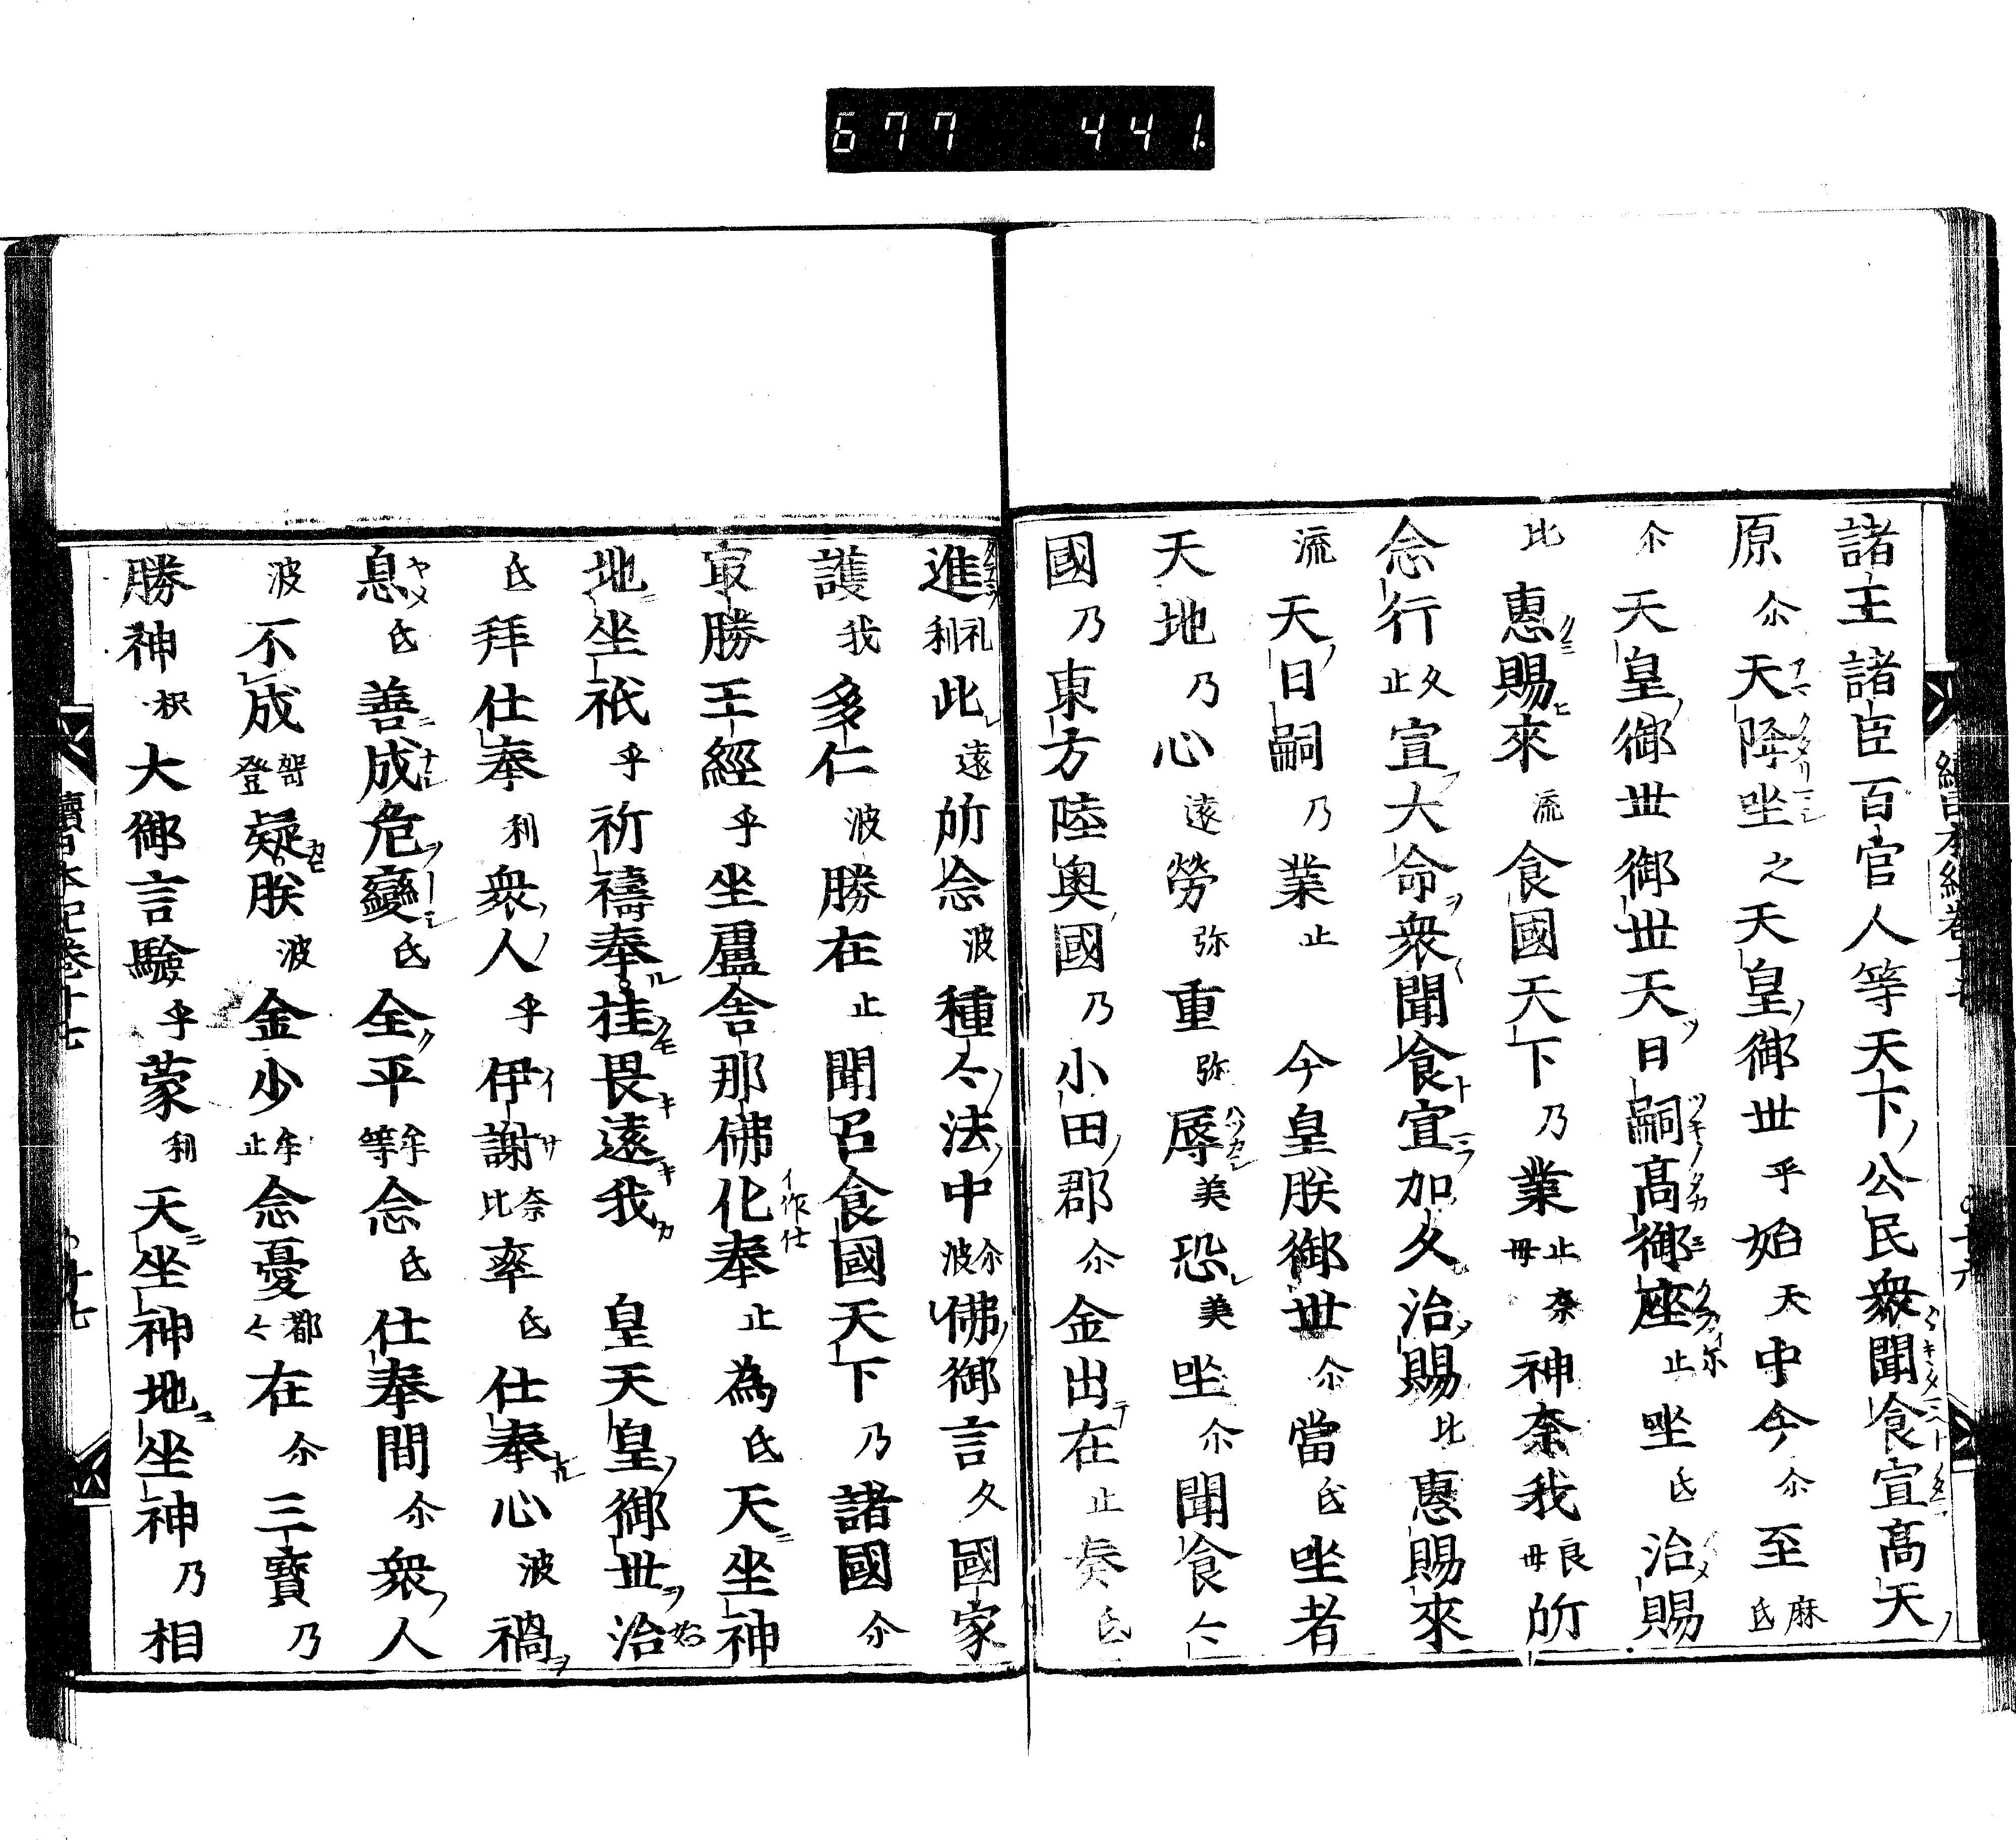 677 441.
諸王諸臣百官人等天下公民衆聞食宣髙天
原尒天降坐之天皇御世乎始天中今尒至麻氐
尒天皇御世御世天日嗣髙御座止坐氐治賜
比惠賜來流食國天下乃業止毋奈神奈我良毋所
念行久止宣大命衆聞食宣加久治賜比惠賜來
流天日嗣乃業止今皇朕御世尒當氐坐者
天地乃心遠勞弥重弥辱美恐美坐尒聞食仝
國乃東方陸奥國乃小田郡尒金出在止奏氐
進礼利此遠所念波種仝法中尒波佛御言久國家
護我多仁波勝在止聞召食國天下乃諸國尒
冣勝王經乎坐盧舎那佛化奉止為氐天坐神
地坐祇乎祈禱奉挂畏遠我皇天皇御世治
氐拜仕奉利衆人乎伊謝奈比率氐仕奉心波禍
息氐善成危變氐全平牟等念氐仕奉間尒衆人
波不成哿登疑朕波金少牟止念憂都仝在尒三寳乃
勝神枳大御言驗乎蒙利天坐神地坐神乃相
續日本紀巻十七
十七